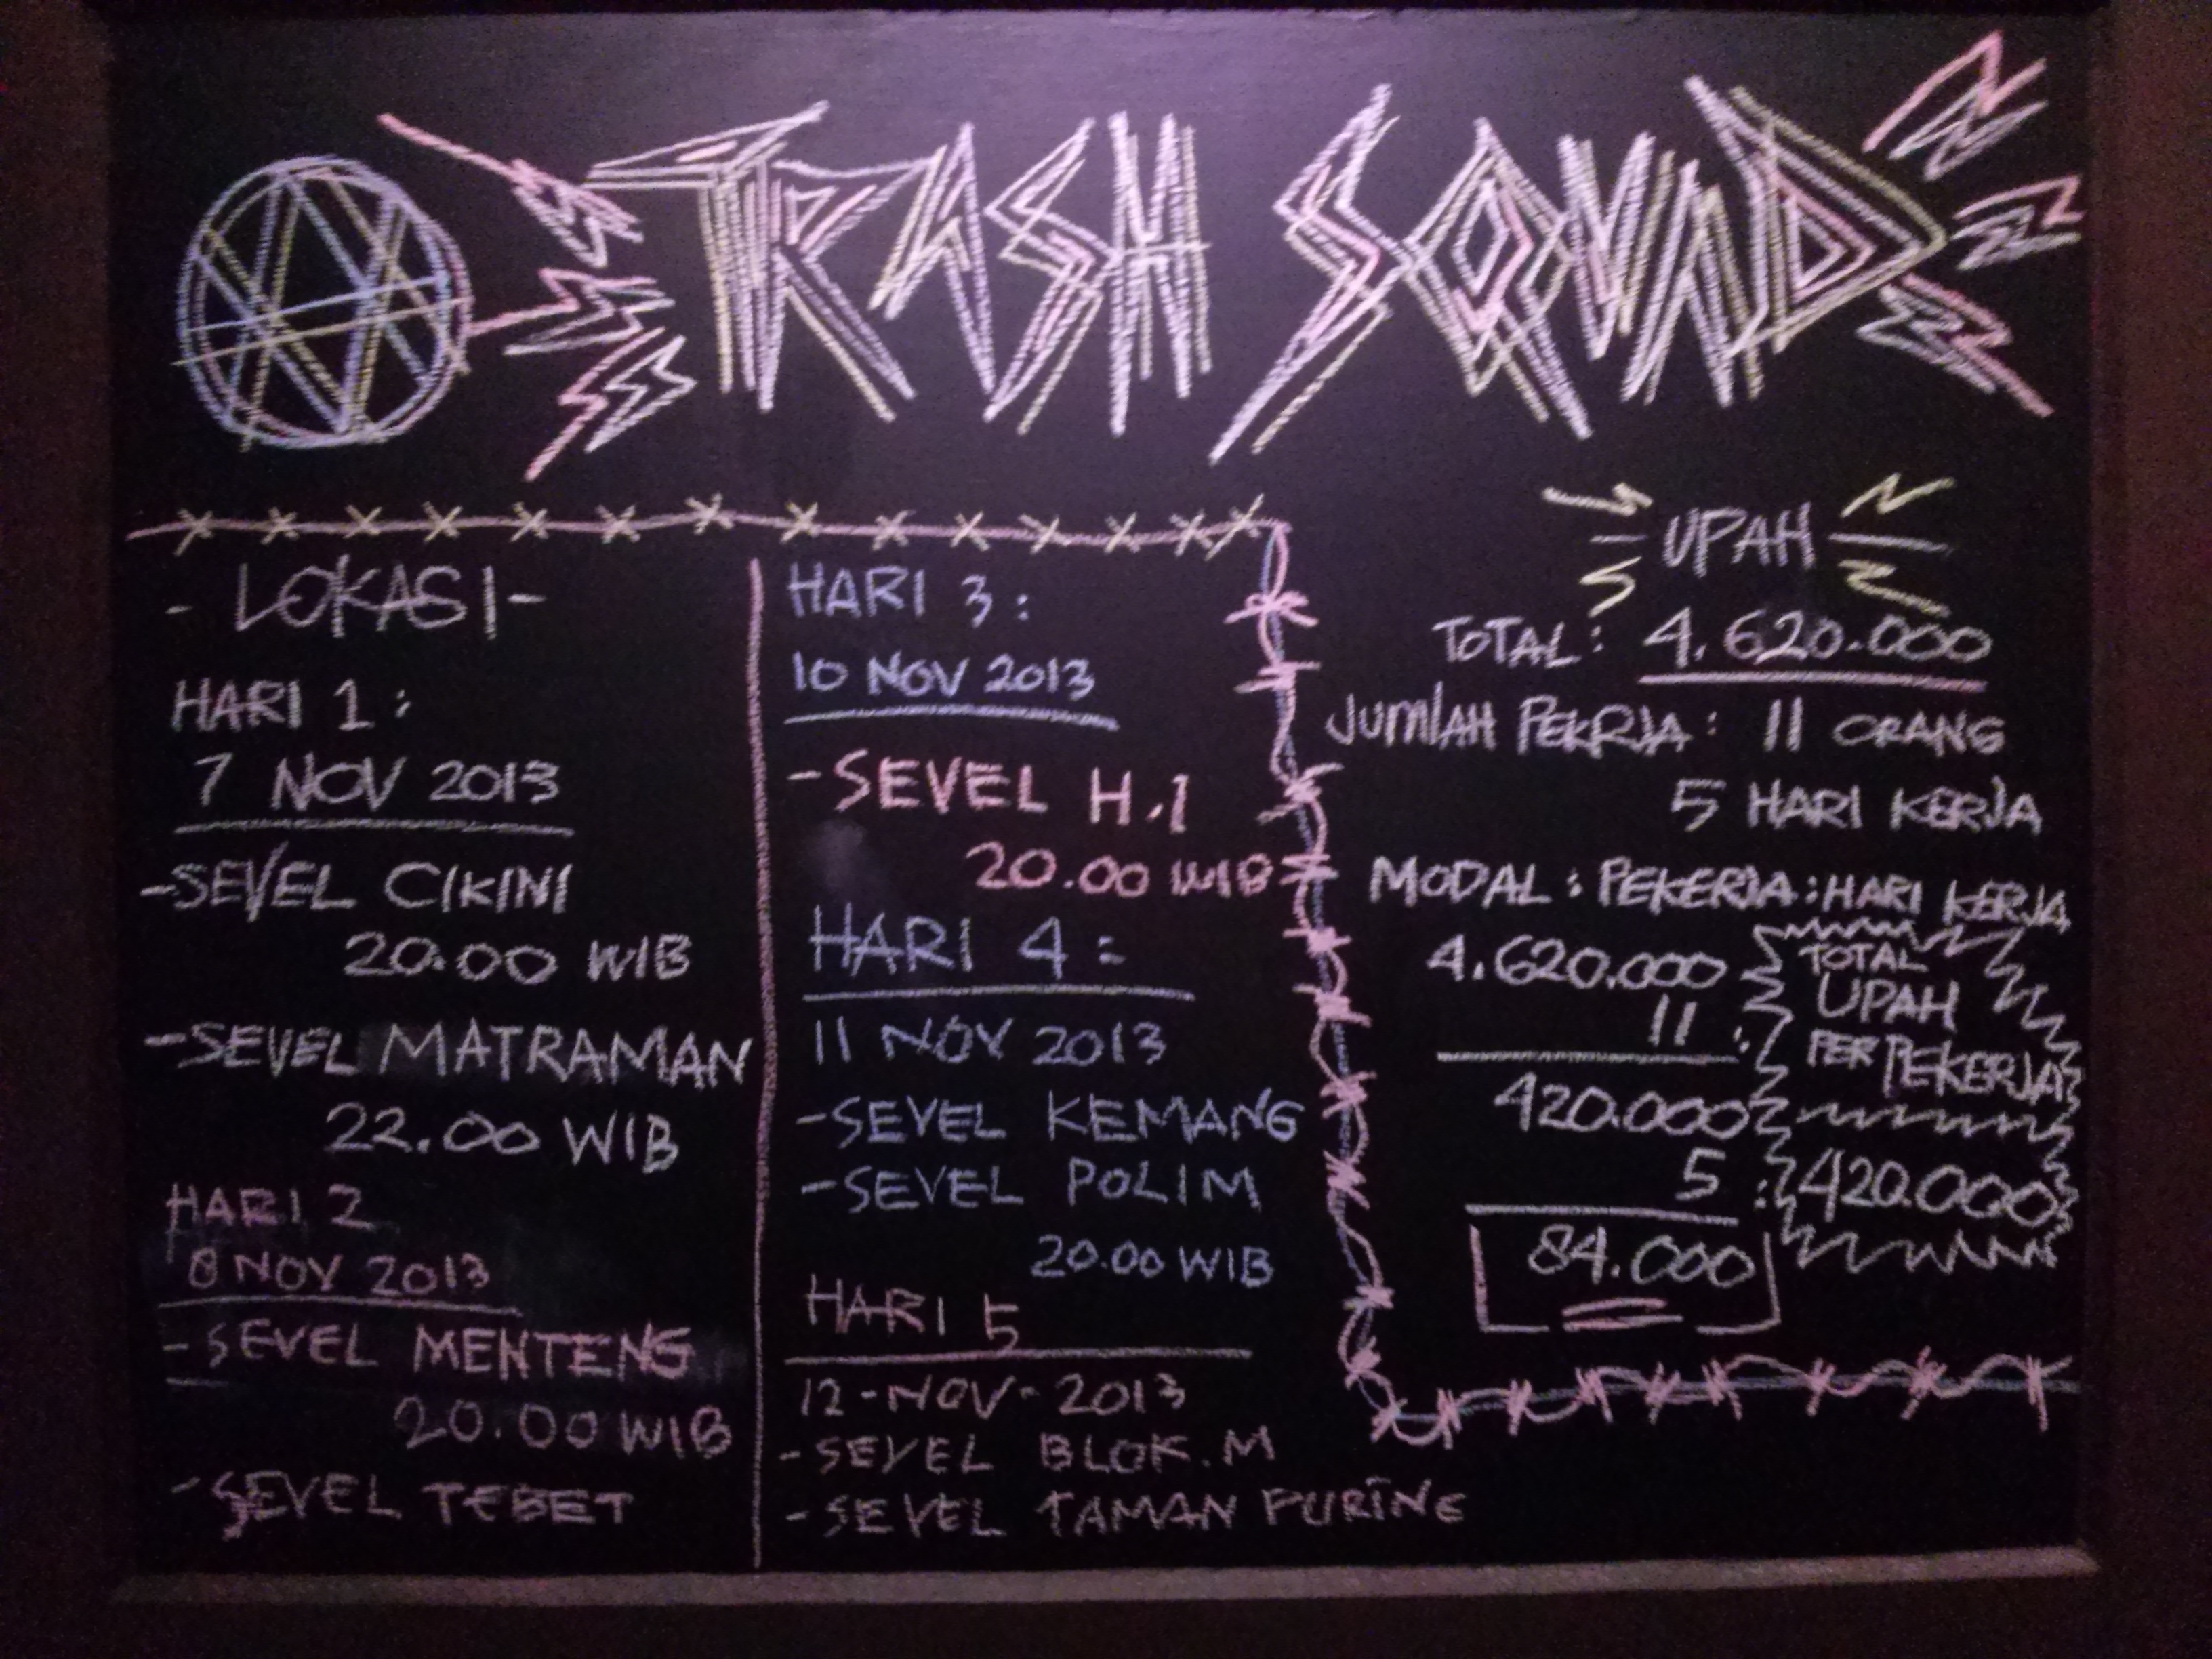 TRASH SQUAD
- LOKASI -
HARI 1 :
7 NOV 2013
- SEVEL CIKINI
20.00 WIB
- SEVEL MATRAMAN
22.00 WIB
HARI 2
8 NOV 2013
- SEVEL MENTENG
20.00 WIB
- SEVEL TEBET
HARI 3 :
10 NOV 2013
- SEVEL H.I
20.00 WIB
HARI 4 :
11 NOV 2013
- SEVEL KEMANG
- SEVEL POLIM
20.00 WIB
HARI 5
12-NOV-2013
- SEVEL BLOK.M
- SEVEL TAMAN PURING
UPAH
TOTAL : 4.620.000
JUMLAH PEKRJA : 11 ORANG
5 HARI KERJA
MODAL : PEKERJA : HARI KERJA
4.620.000
11 :
420.000
5 :
84.000
TOTAL
UPAH
PER PEKERJA
420.000